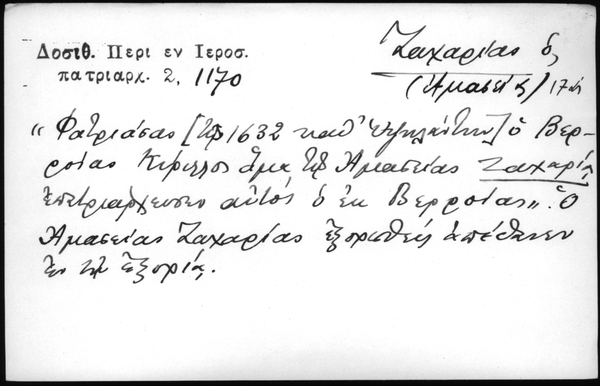 Δοσιθ. Περι εν Ιεροσ.
πατριαρχ. 2, 1170
Ζαχαρίας ὁ,
(Ἀμασείας) 17
"Φατριάσας [τῷ 1632 καθ' Ὑψηλάντην] ὁ Βερ-
ροίας Κύριλλος ἅμα τῷ Ἀμασείας Ζαχαρίᾳ
ἐπετριάρχευσεν αὐτός ὁ ἐκ Βερροίας". Ὁ
Ἀμασείας Ζαχαρίας ἐξορισθείς ἀπέθανεν
ἐν τῇ ἐξορίᾳ.